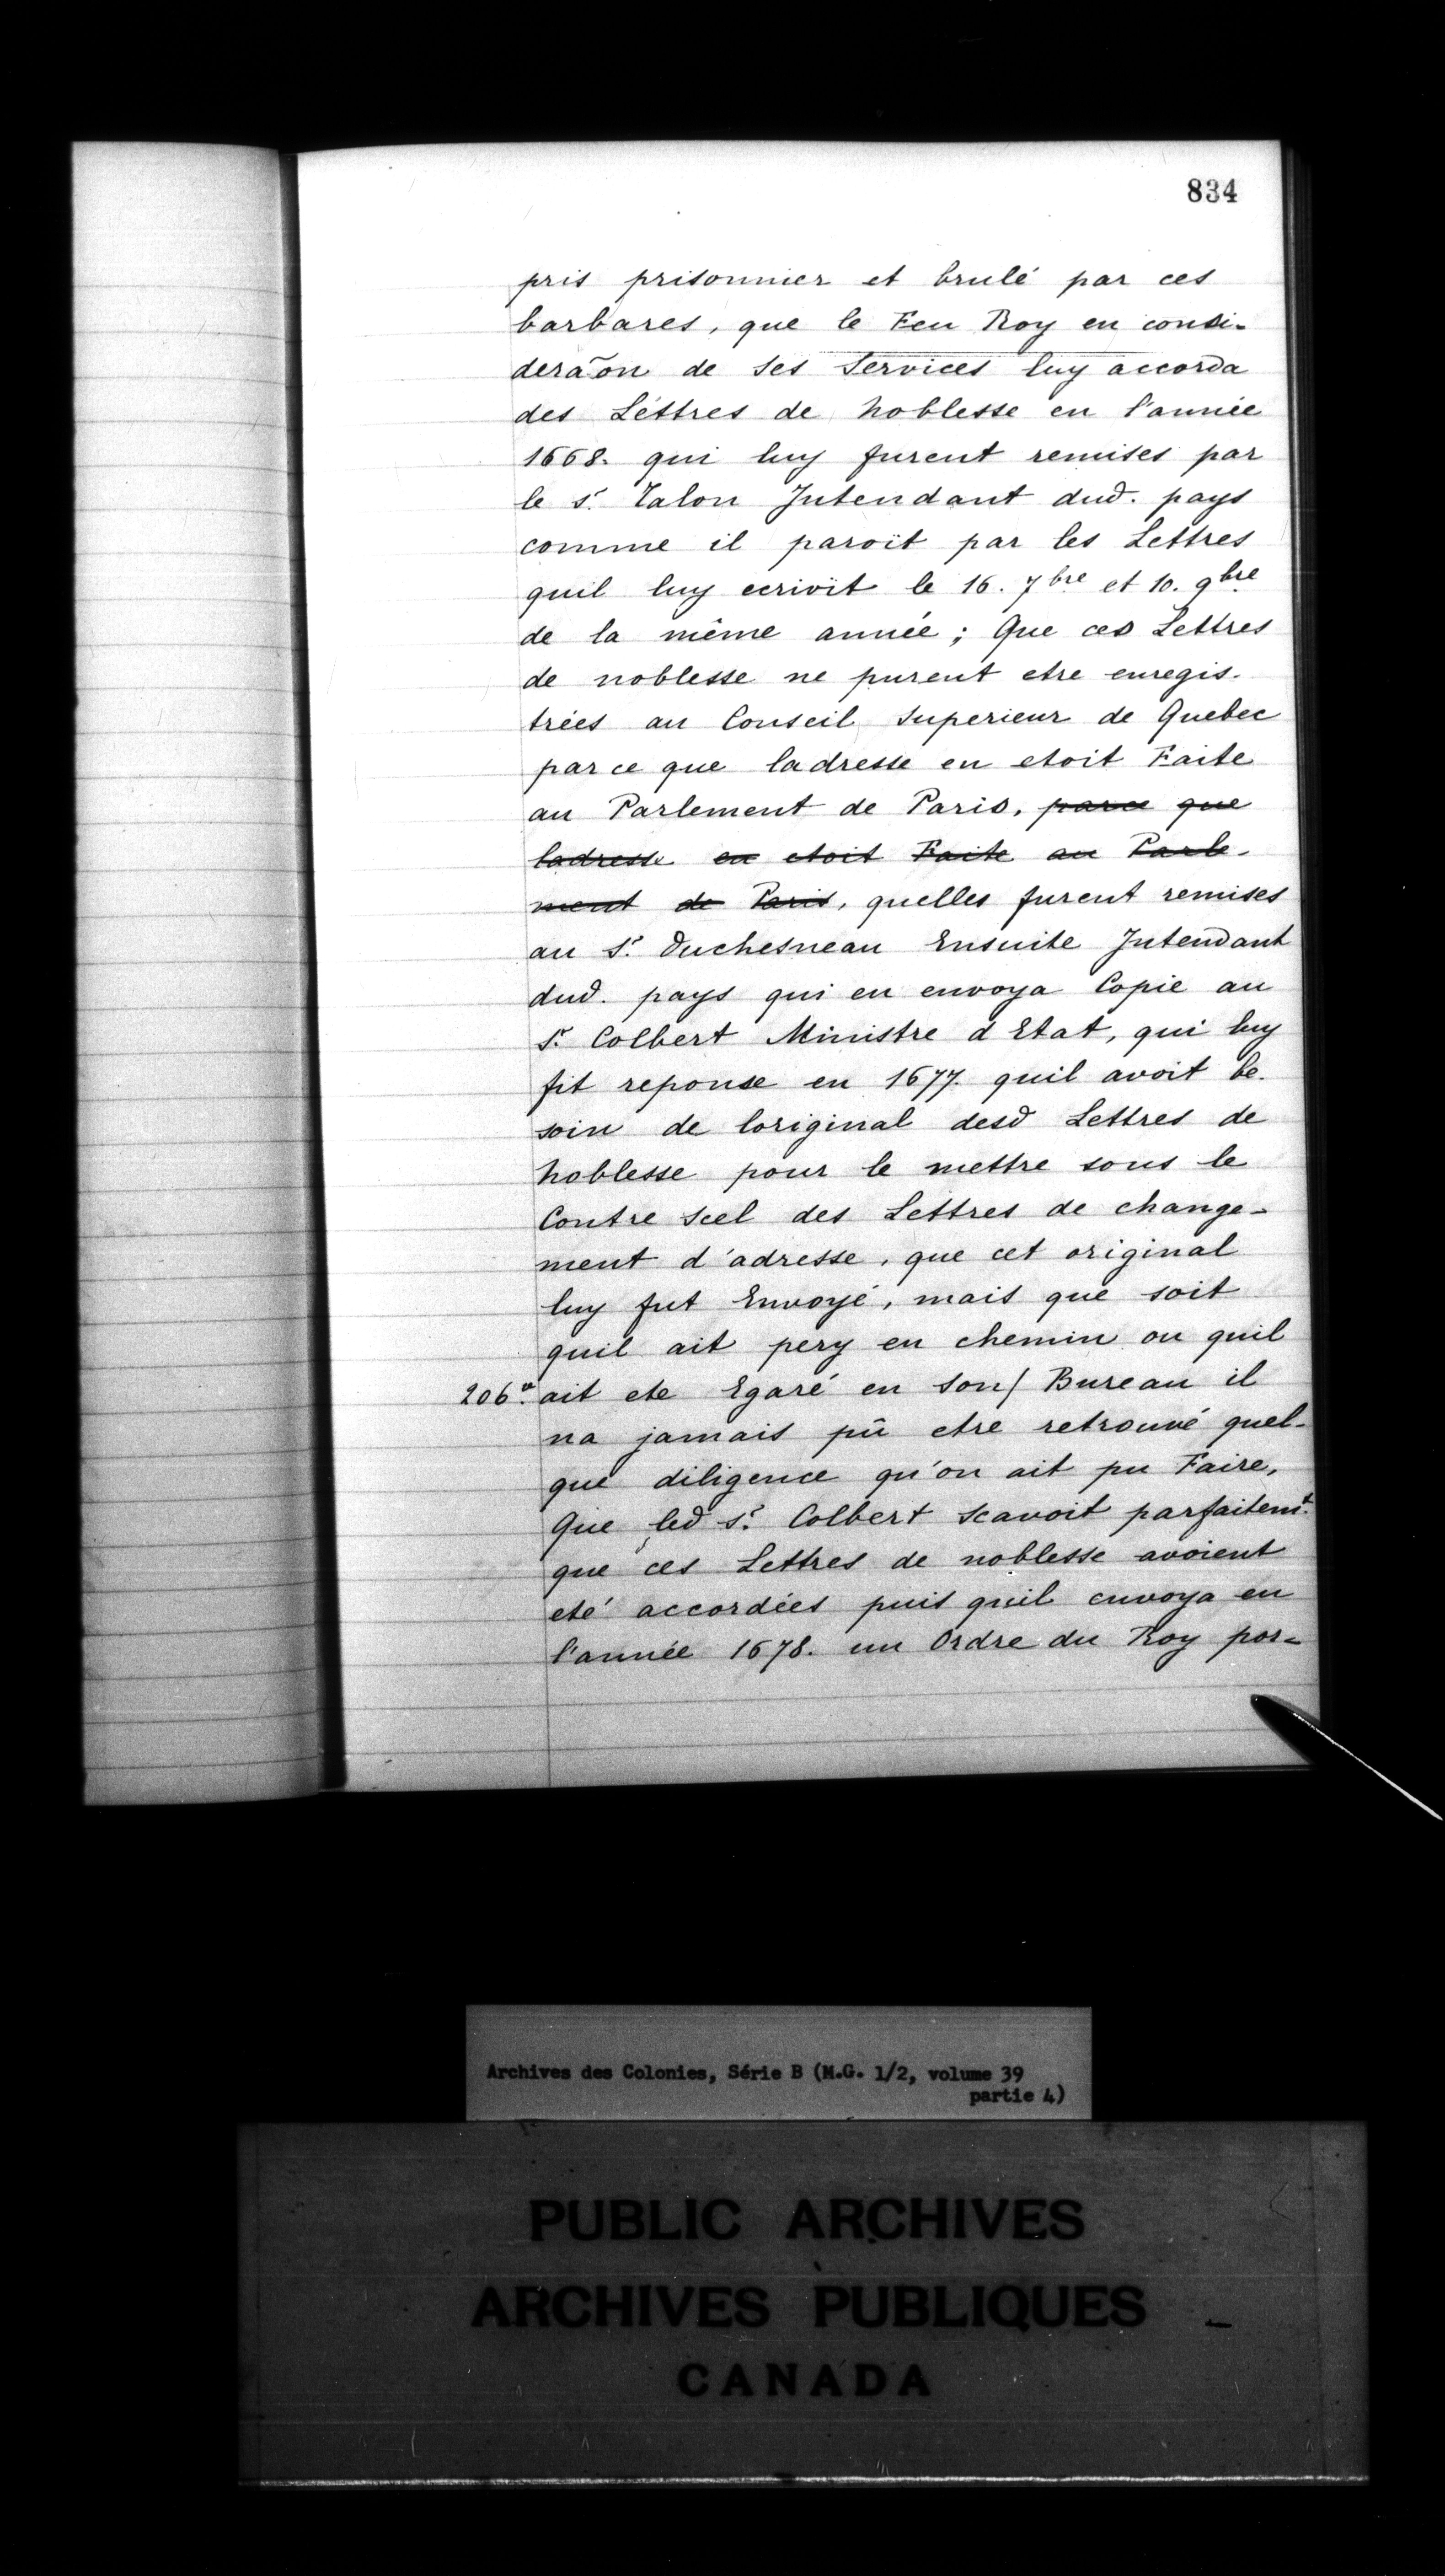 834
pris prisonnier et brulé par ces
barbares, que le Feu Roy en consi-
deraõn de ses services luy accorda
des Léttres de noblesse en l'année
1668. qui luy furent remises par
le Sr. Talon Intendant dud. pays
comme il paroît par les Lettres
quil luy ecrivit le 16. 7bre et 10. 9bre
de la même année ; Que ces Lettres
de noblesse ne purent etre enregis-
trées au Conseil superieur de Quebec
par ce que ladresse en etoit Faite
au Parlement de Paris, parce que
ladresse en etoit Faite au Parle-
ment de Paris, quelles furent remises
au Sr. Duchesneau Ensuite Intendant
dud. pays qui en envoya Copie au
Sr. Colbert Ministre d Etat, qui luy
fit reponse en 1677. quil avoit be-
soin de loriginal desd Lettres de
noblesse pour le mettre sous le
Contre scel des Lettres de change-
ment d'adresse, que cet original
luy fut Envoyé, mais que soit
quil ait pery en chemin ou quil
206.v ait ete Egaré en son/ Bureau il
na jamais pû etre retrouvé quel-
que diligence qu'on ait pu Faire,
Que led Sr. Colbert scavoit parfaitemt.
que ces Lettres de noblesse avoient
eté accordées puis quil envoya en
l'année 1678. un Ordre du Roy por-
Archives des Colonies, Série B (M.G. 1/2, volume 39
partie 4)
PUBLIC ARCHIVES
ARCHIVES PUBLIQUES
CANADA